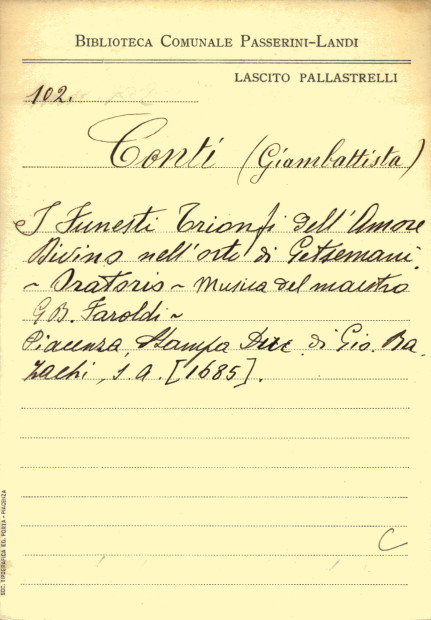 BIBLIOTECA COMUNALE PASSERINI-LANDI
LASCITO PALLASTRELLI
102.
Conti (Giambattista)
I Funesti Trionfi dell'Amore
Divino nell'orto di Getsemani
- Oratorio - Musica del maestro
G B. Faroldi -
Piacenza, Stampa Duc. di Gio. Ba.
Zachi, s. a. [1685].
C
SOC. TIPOGRAFICA ED. PORTA - PIACENZA